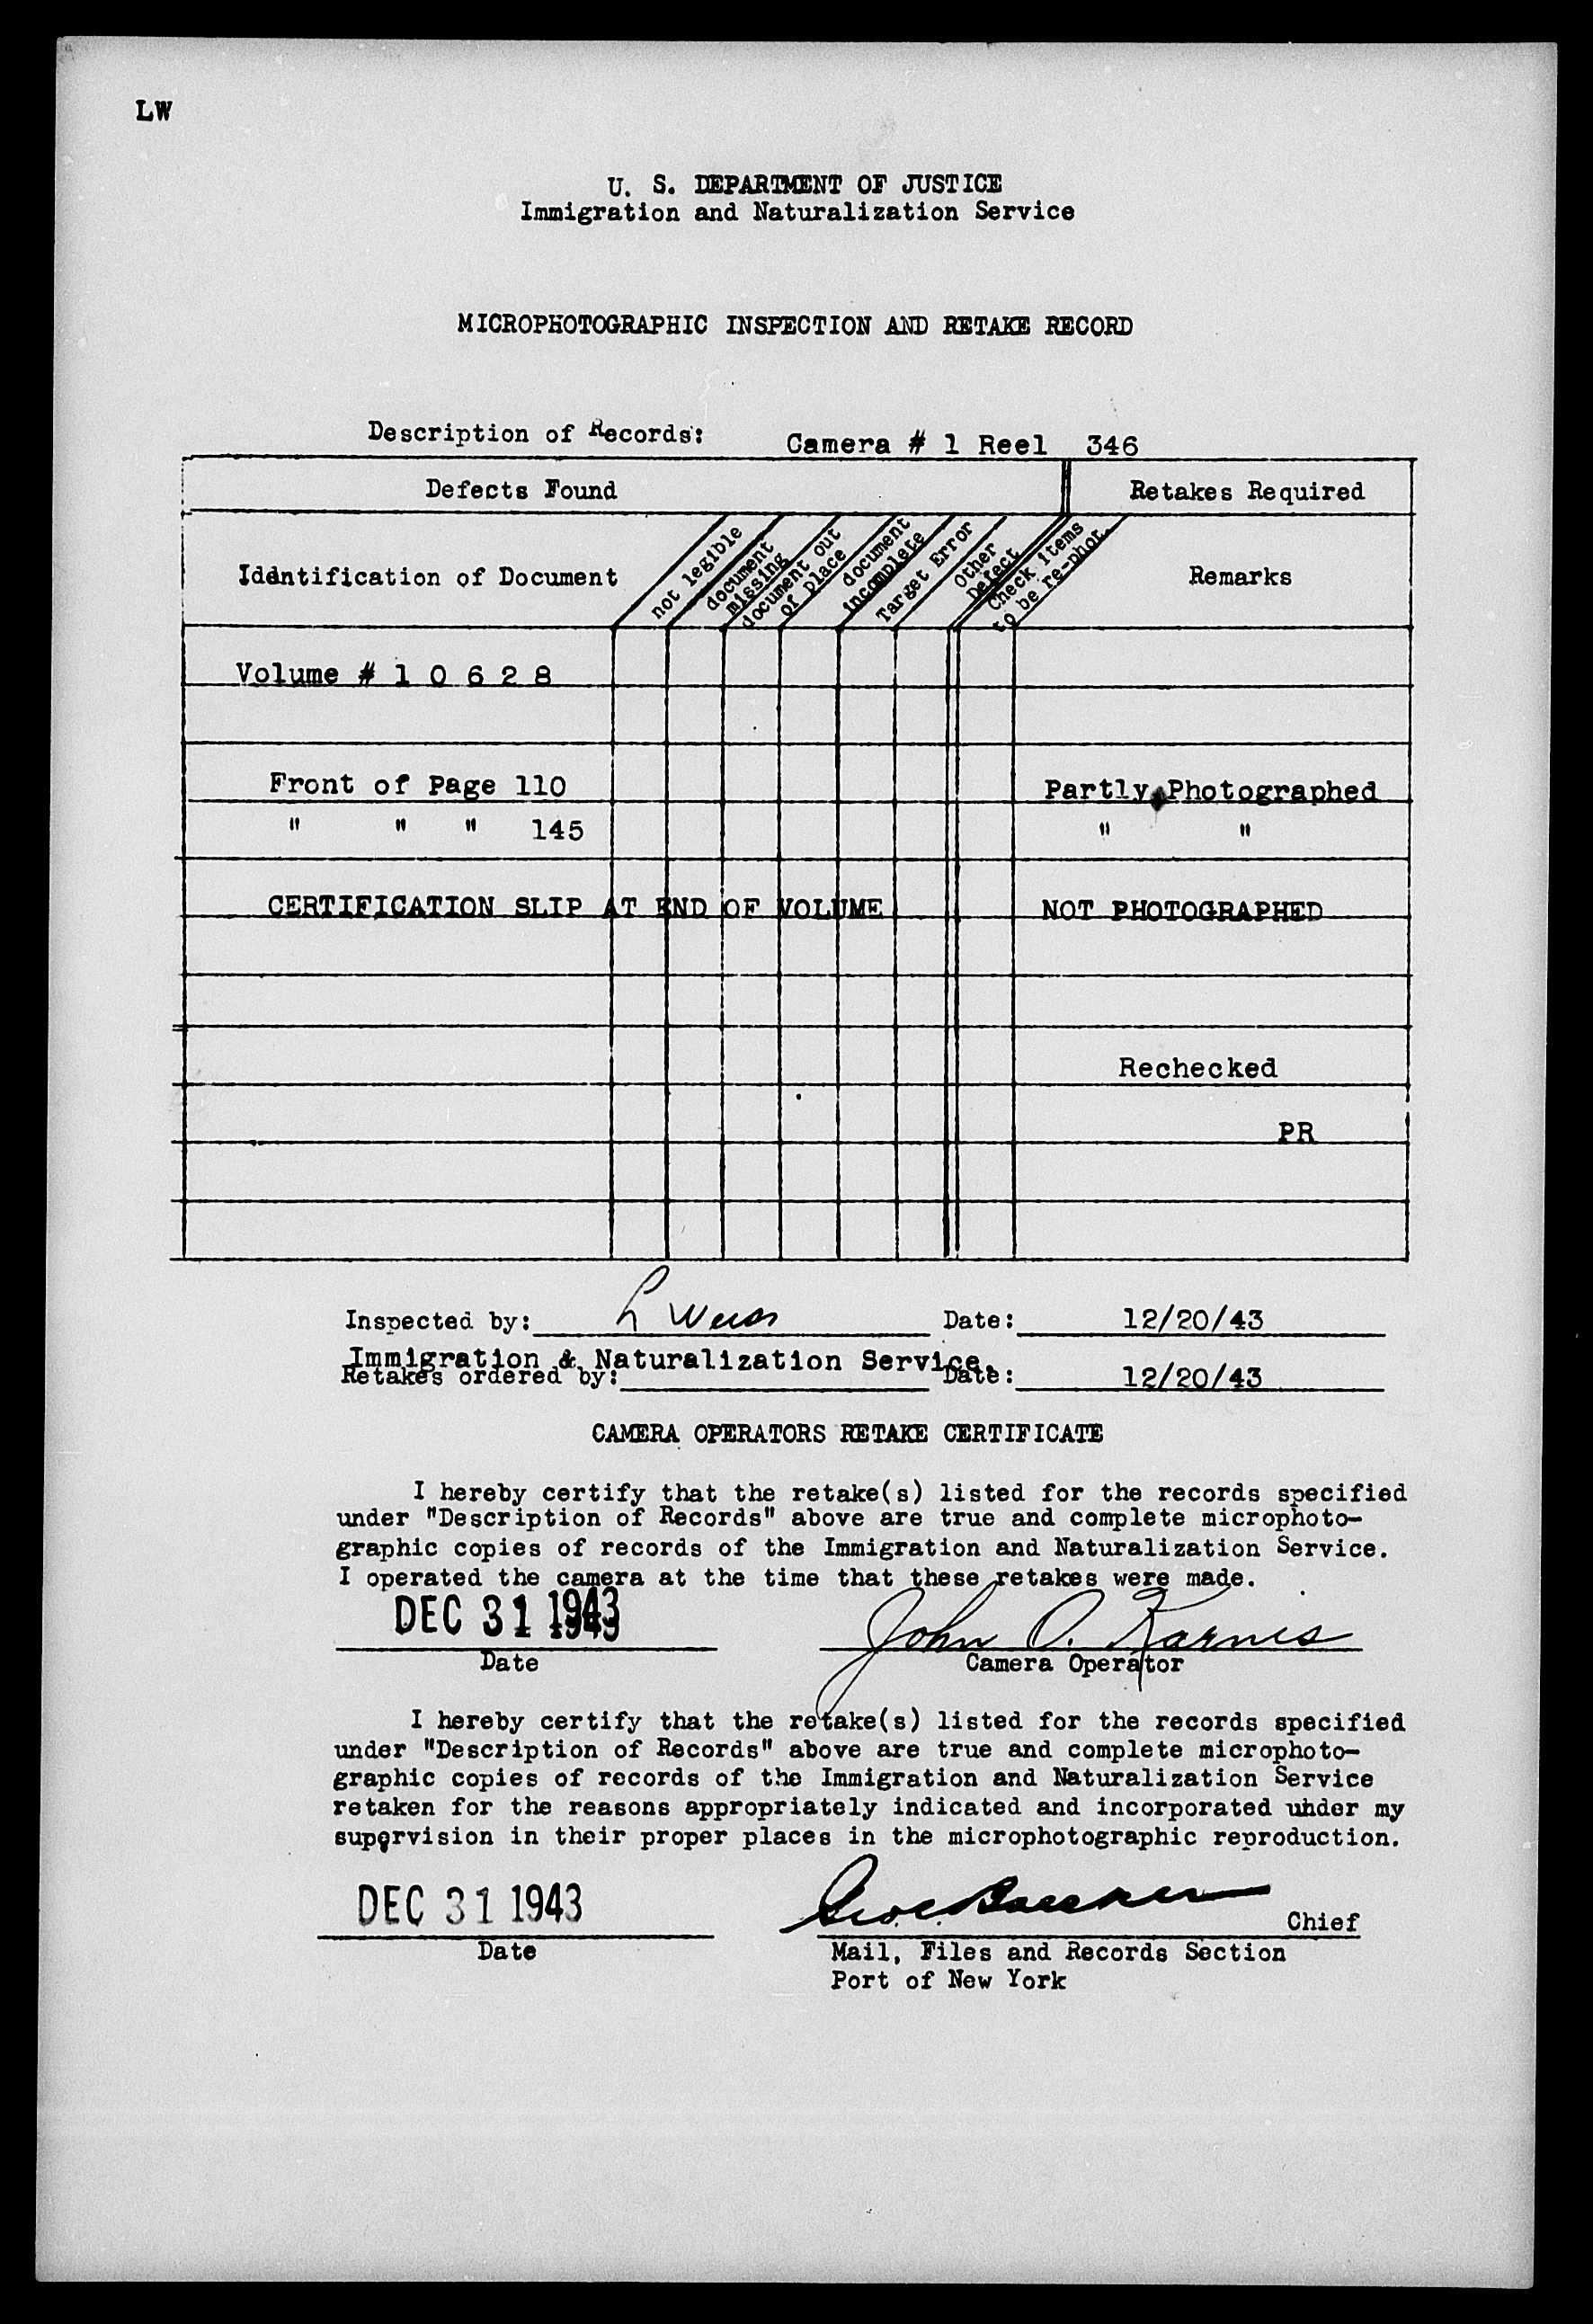 LW
U. S. DEPARTMENT OF JUSTICE
Immigration and Naturalization Service
MICROPHOTOGRAPHIC INSPECTION AND RETAKE RECORD
Description of Records: Camera # 1 Reel 346
Defects Found Retakes Required
Identification of Document
not legible
document missing
document out of place
document incomplete
Target Error
Other Defect
Check items to be re-phot.
Remarks
Volume # 1 0 6 2 8
Front of Page 110 Partly Photographed
" " " 145 " "
CERTIFICATION SLIP AT END OF VOLUME NOT PHOTOGRAPHED
Rechecked
PR
Inspected by: L Weiss Date: 12/20/43
Immigration & Naturalization Service.
Retakes ordered by: Date: 12/20/43
CAMERA OPERATORS RETAKE CERTIFICATE
I hereby certify that the retake(s) listed for the records specified
under "Description of Records" above are true and complete microphoto-
graphic copies of records of the Immigration and Naturalization Service.
I operated the camera at the time that these retakes were made.
DEC 31 1943 John O. Karnes
Date Camera Operator
I hereby certify that the retake(s) listed for the records specified
under "Description of Records" above are true and complete microphoto-
graphic copies of records of the Immigration and Naturalization Service
retaken for the reasons appropriately indicated and incorporated uhder my
supervision in their proper places in the microphotographic reproduction.
DEC 31 1943 Chief
Date Mail, Files and Records Section
Port of New York